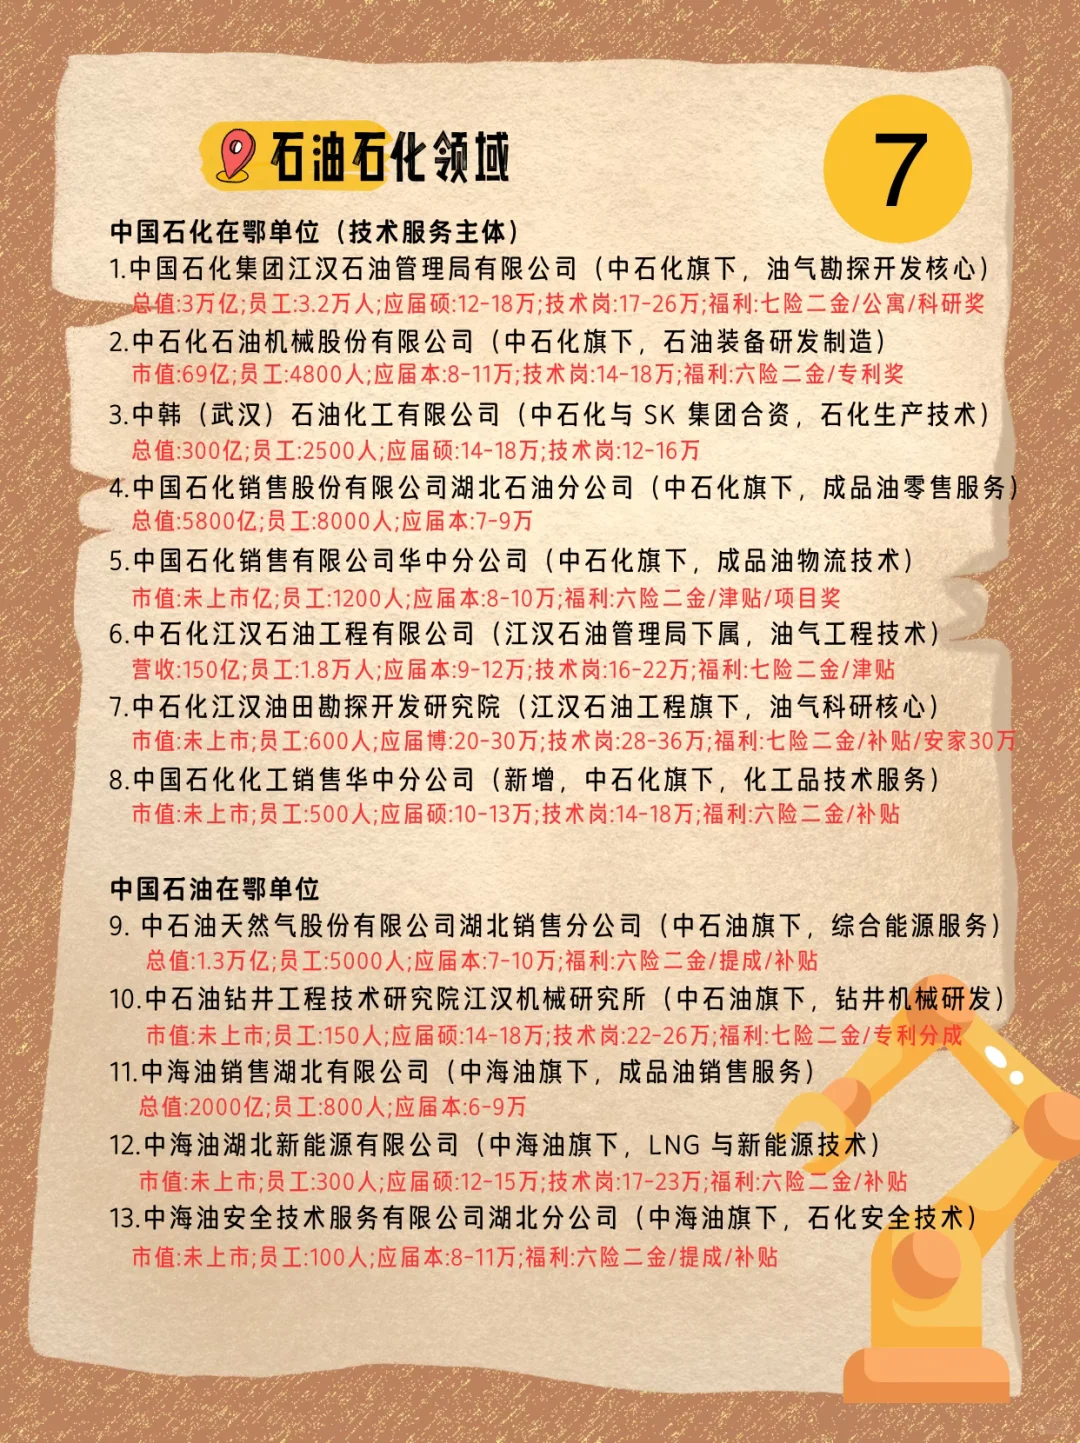 石油石化领域
7
中国石化在鄂单位（技术服务主体）
1.中国石化集团江汉石油管理局有限公司（中石化旗下，油气勘探开发核心）
总值:3万亿;员工:3.2万人;应届硕:12-18万;技术岗:17-26万;福利:七险二金/公寓/科研奖
2.中石化石油机械股份有限公司（中石化旗下，石油装备研发制造）
市值:69亿;员工:4800人;应届本:8-11万;技术岗:14-18万;福利:六险二金/专利奖
3.中韩（武汉）石油化工有限公司（中石化与 SK 集团合资，石化生产技术）
总值:300亿;员工:2500人;应届硕:14-18万;技术岗:12-16万
4.中国石化销售股份有限公司湖北石油分公司（中石化旗下，成品油零售服务）
总值:5800亿;员工:8000人;应届本:7-9万
5.中国石化销售有限公司华中分公司（中石化旗下，成品油物流技术）
市值:未上市亿;员工:1200人;应届本:8-10万;福利:六险二金/津贴/项目奖
6.中石化江汉石油工程有限公司（江汉石油管理局下属，油气工程技术）
营收:150亿;员工:1.8万人;应届本:9-12万;技术岗:16-22万;福利:七险二金/津贴
7.中石化江汉油田勘探开发研究院（江汉石油工程旗下，油气科研核心）
市值:未上市;员工:600人;应届博:20-30万;技术岗:28-36万;福利:七险二金/补贴/安家30万
8.中国石化化工销售华中分公司（新增，中石化旗下，化工品技术服务）
市值:未上市;员工:500人;应届硕:10-13万;技术岗:14-18万;福利:六险二金/补贴
中国石油在鄂单位
9. 中石油天然气股份有限公司湖北销售分公司（中石油旗下，综合能源服务）
总值:1.3万亿;员工:5000人;应届本:7-10万;福利:六险二金/提成/补贴
10.中石油钻井工程技术研究院江汉机械研究所（中石油旗下，钻井机械研发）
市值:未上市;员工:150人;应届硕:14-18万;技术岗:22-26万;福利:七险二金/专利分成
11.中海油销售湖北有限公司（中海油旗下，成品油销售服务）
总值:2000亿;员工:800人;应届本:6-9万
12.中海油湖北新能源有限公司（中海油旗下，LNG 与新能源技术）
市值:未上市;员工:300人;应届硕:12-15万;技术岗:17-23万;福利:六险二金/补贴
13.中海油安全技术服务有限公司湖北分公司（中海油旗下，石化安全技术）
市值:未上市;员工:100人;应届本:8-11万;福利:六险二金/提成/补贴